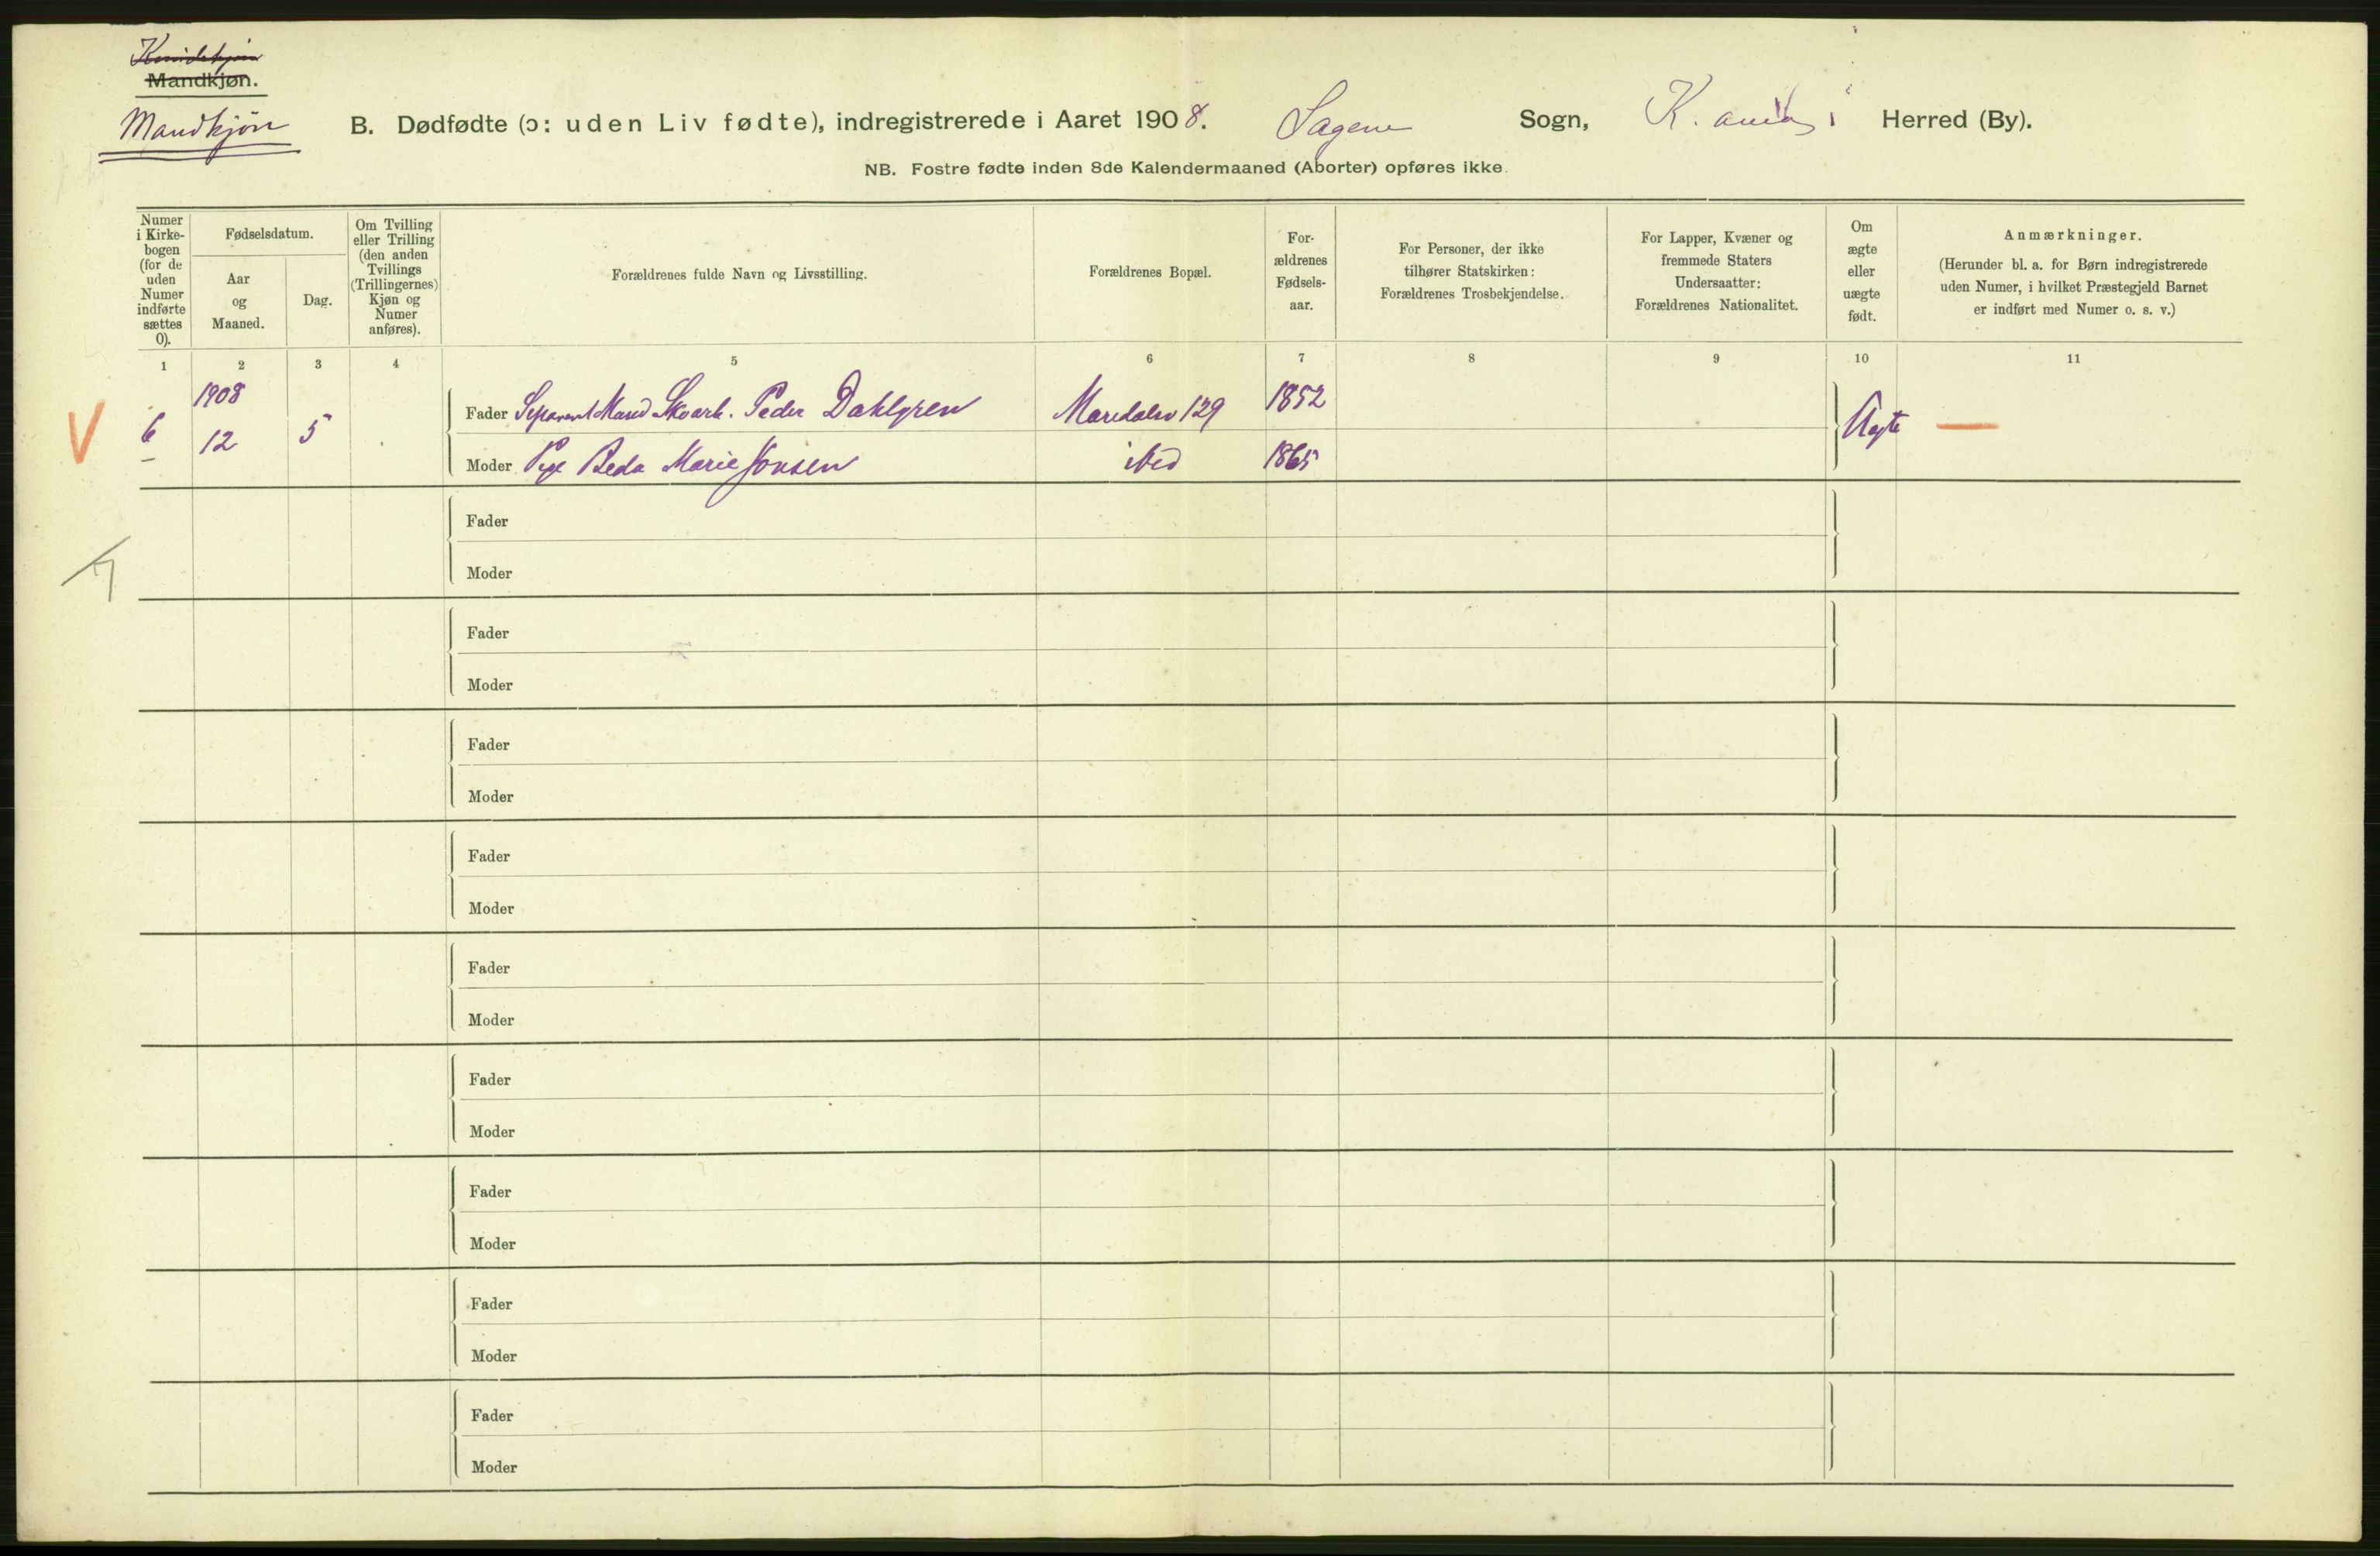 Kvindekjøn
Mandkjøn.
Mandkjön
B. Dødfødte (ɔ: uden Liv fødte), indregistrerede i Aaret 1908. Sagene Sogn, K. Herred (By).
NB. Fostre fødte inden 8de Kalendermaaned (Aborter) opføres ikke.
Numer
i Kirke-
bogen
(for de
uden
Numer
indførte
sættes
0).
Fødselsdatum.
Aar
og
Maaned.
Dag.
Om Tvilling
eller Trilling
(den anden
Tvillings
(Trillingernes)
Kjøn og
Numer
anføres).
Forældrenes fulde Navn og Livsstilling.
Forældrenes Bopæl.
For-
ældrenes
Fødsels-
aar.
For Personer, der ikke
tilhører Statskirken:
Forældrenes Trosbekjendelse.
For Lapper, Kvæner og
fremmede Staters
Undersaatter:
Forældrenes Nationalitet.
Om
ægte
eller
uægte
født.
Anmærkninger.
(Herunder bl. a. for Børn indregistrerede
uden Numer, i hvilket Præstegjeld Barnet
er indført med Numer o. s. v.)
1 2 3 4 5 6 7 8 9 10 11
1908
V 6 12 5
Fader Separert Mand Skoarb. Peder Dahlgren Maridalsv 129 1852
Uægte —
Moder Pige Beda Marie Jonsen ibid 1865
Fader
Moder
Fader
Moder
Fader
Moder
Fader
Moder
Fader
Moder
Fader
Moder
Fader
Moder
Fader
Moder
Fader
Moder